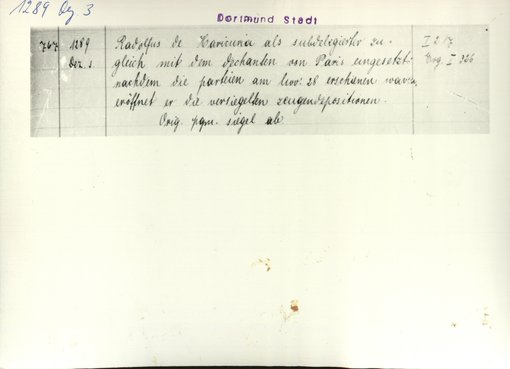 1289 Dez 3
Dortmund Stadt
767 1289 Radolfus de Haricuria als subdeligierter zu- I 217
Dez. s. gleich mit dem dechanten von Paris eingesetzt: Erg. I 366
nachdem die parteien am nov: 28 erschienen waren,
eröffnet er die versiegelten zeugendepositionen.
Orig. pgm. siegel ab.